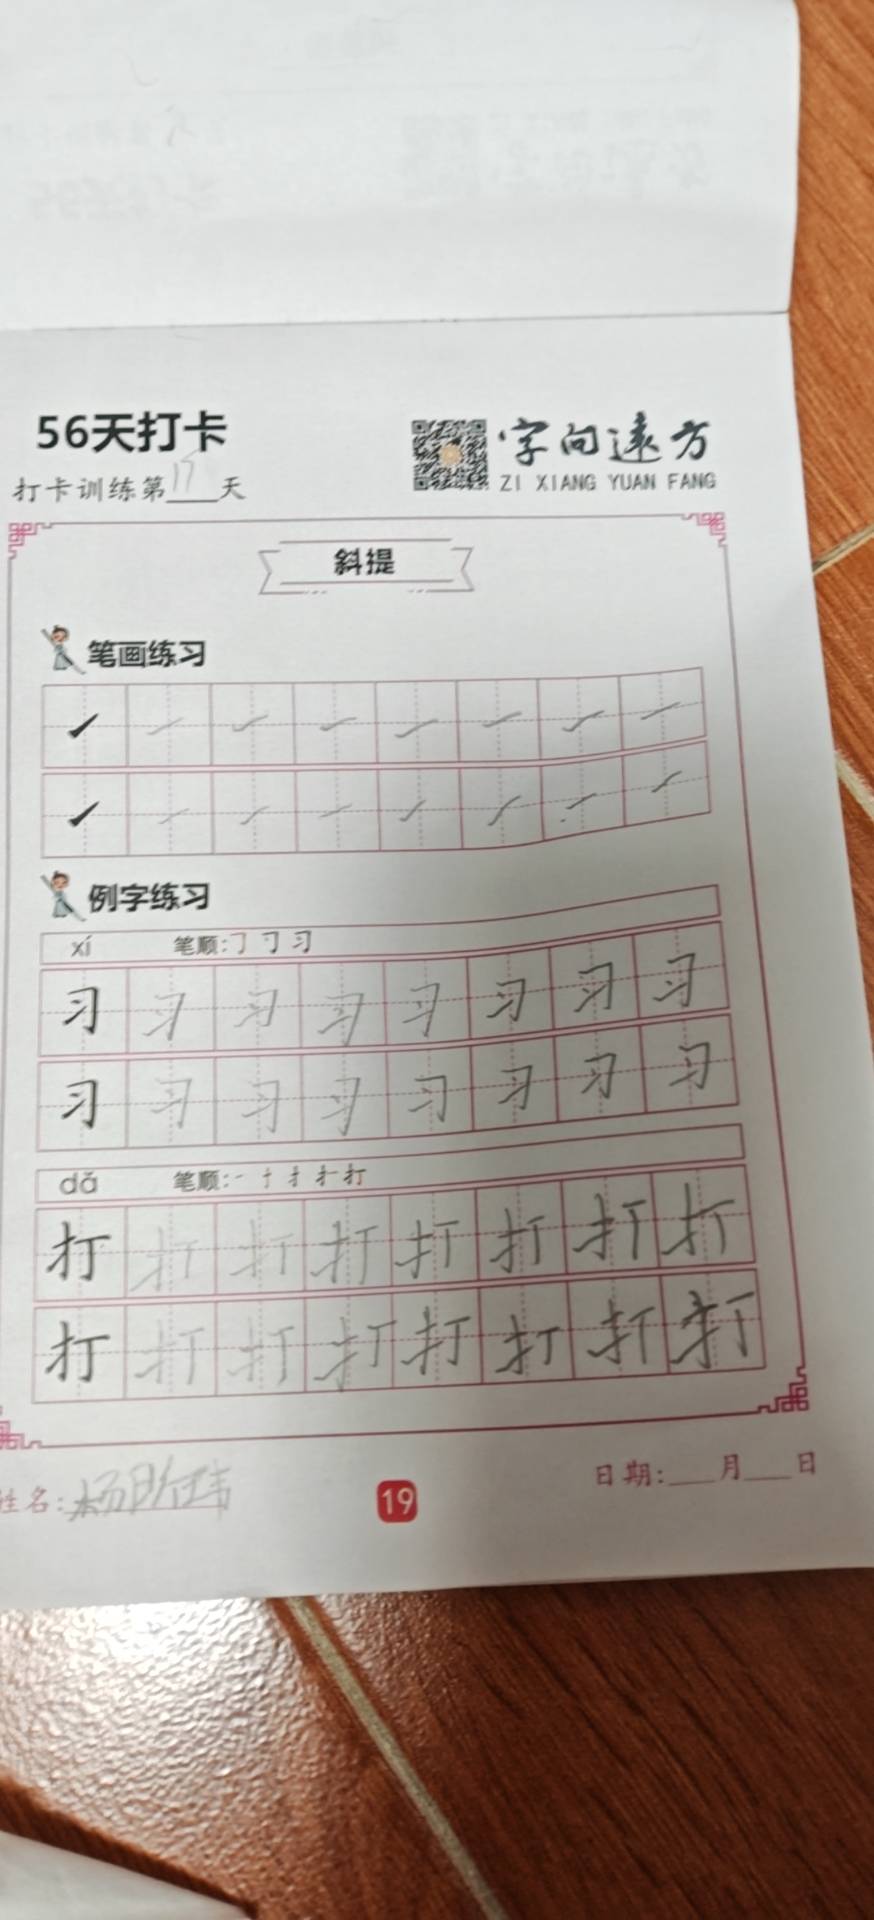 56天打卡
字向远方
ZI XIANG YUAN FANG
打卡训练第17天
斜提
笔画练习
例字练习
xí 笔顺:
习 习 习 习 习 习 习 习
习 习 习 习 习 习 习 习
dǎ 笔顺:
打 打 打 打 打 打 打 打
打 打 打 打 打 打 打 打
姓名:
日期:___月___日
19